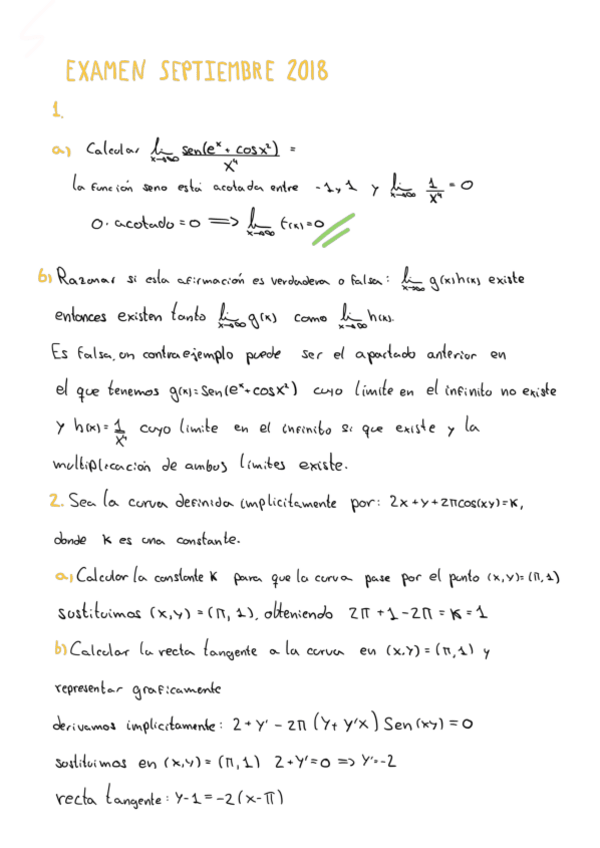 EXAMEN SEPTIEMBRE 2018
1.
a) Calcular lim x→∞ sen(e^x + cos x²) / x⁴ =
la función seno está acotada entre -1 y 1 y lim x→∞ 1/x⁴ = 0
0 · acotado = 0 ⟹ lim x→∞ f(x) = 0
b) Razonar si esta afirmación es verdadera o falsa: lim x→∞ g(x)h(x) existe
entonces existen tanto lim x→∞ g(x) como lim x→∞ h(x).
Es falsa, un contraejemplo puede ser el apartado anterior en
el que tenemos g(x) = sen(e^x + cos x²) cuyo límite en el infinito no existe
y h(x) = 1/x⁴ cuyo límite en el infinito si que existe y la
multiplicación de ambos límites existe.
2. Sea la curva definida implicitamente por: 2x + y + 2πcos(xy) = K,
donde K es una constante.
a) Calcular la constante K para que la curva pase por el punto (x,y) = (π,1)
sustituimos (x,y) = (π, 1), obteniendo 2π + 1 - 2π = K = 1
b) Calcular la recta tangente a la curva en (x,y) = (π,1) y
representar graficamente
derivamos implicitamente: 2 + y' - 2π (y + y'x) Sen(xy) = 0
sustituimos en (x,y) = (π,1) 2 + y' = 0 => y' = -2
recta tangente: y - 1 = -2(x - π)